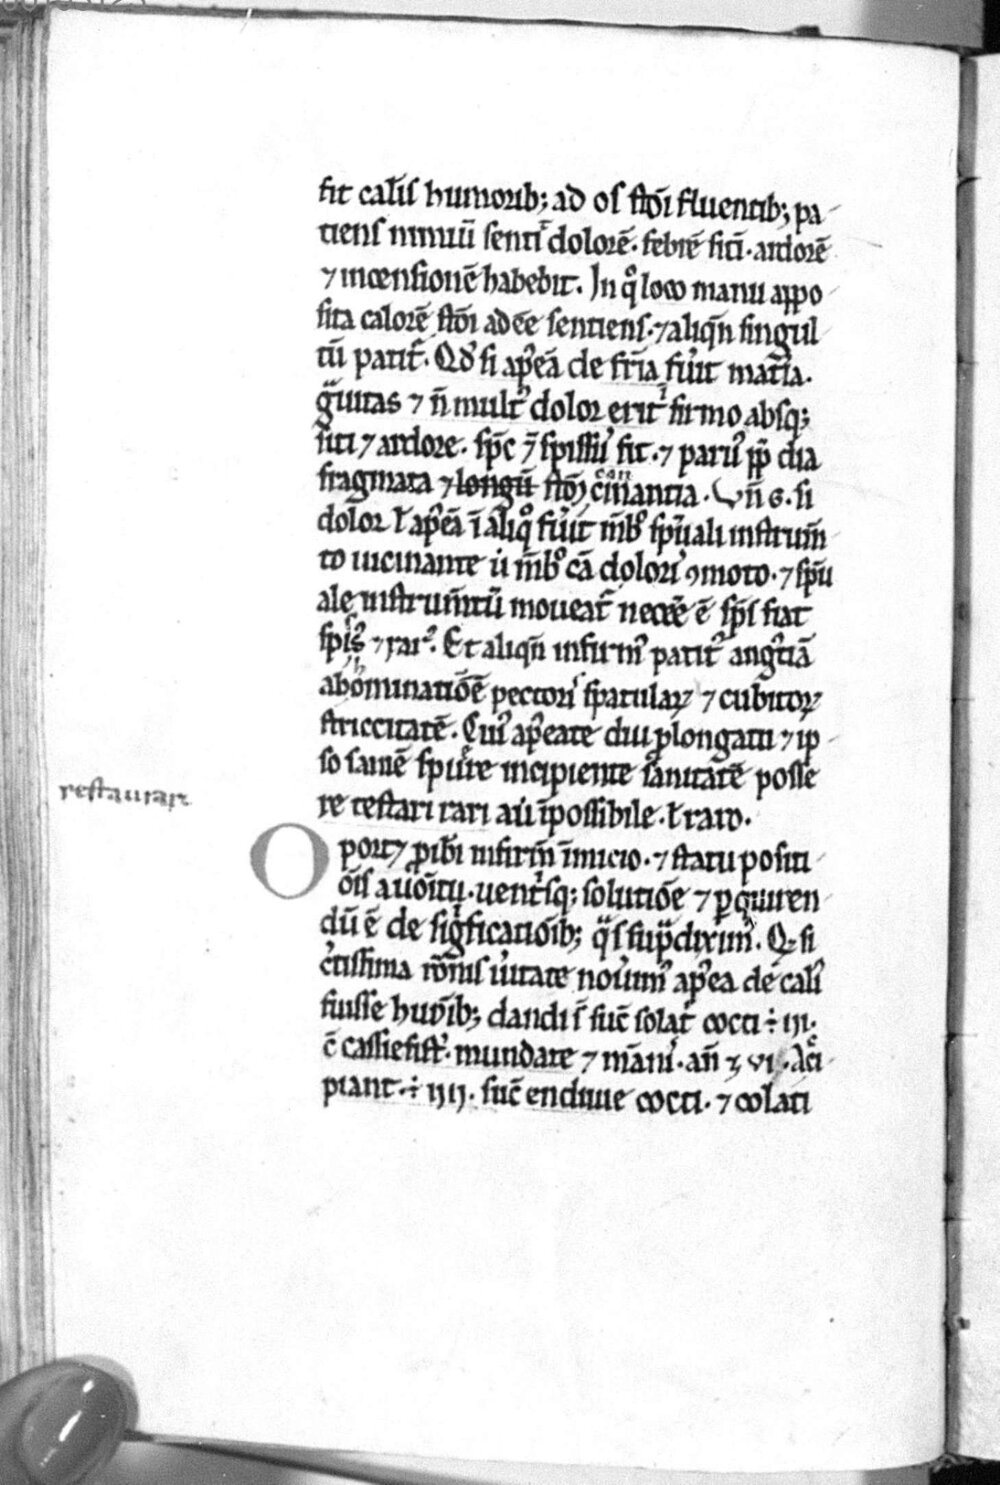 fit caliꝰ humorib; ad os stōi fluentib; pa
tiens nimiū sentit dolorē. febrē sitī. ardorē
⁊ incensionē habebit. In qͦ loco manu appo
sita calorē stōi adeē sentiens. ⁊ aliqn̄ singul
tū patit̄. Qđ si apeā de fria fuīt mat̄ia.
gͣuitas ⁊ n̄ mult dolor erit firmo absq;
siti ⁊ ardore. sp̄c ⁊ spissiꝰ fit. ⁊ paruꝰ pp̄ dia
fragmata ⁊ longū stōi cinantia. Vn̄ G. si
dolor ł apeā ī aliqͦ fuīt mēbͦ spūali instrum̄
to uicinante ii mēbͦ cā doloris ꝯmoto. ⁊ spū
ale instrum̄tū moueat̄ necēe ē sp̄s fiat
spisꝰ ⁊ rarꝰ. Et aliqn̄ infirmꝰ patit̄ angͣtiā
abominationē pectoris spatulaꝝ ⁊ cubitoꝝ
striccitatē. Cuiꝰ apeate diu ꝓlongata ⁊ ip
so saniē spuēre incipiente sanitatē posse
restaurari
re restari rari aū īpossibile. ł raro.
Oportꝫ ꝓibi infirm̄ ī inicio. ⁊ statu positi
ōis a uoītu. uentīsq; solutiōe ⁊ ꝑquiren
dū ē de significatiōib; qͣs supͣdiximꝰ. Qꝫ si
ctissima rōnis uītate nouimꝰ apea de caliꝰ
fuisse huōib; dandi st̄ suc̄ solat̄ cocti ÷ iii.
c̄ cassiefist̄. mundate ⁊ māni. an̄ ʒ vi. Aci
piant. ÷ iiii. suc̄ endiuie cocti. ⁊ colati